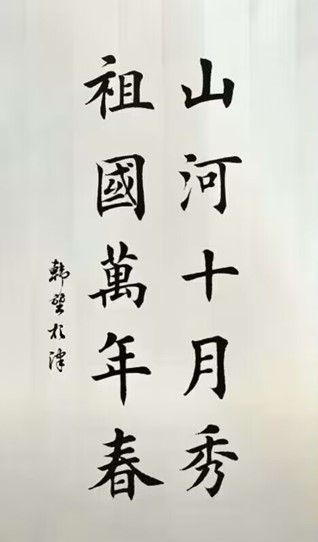 山河十月秀
祖國萬年春
韩望於津